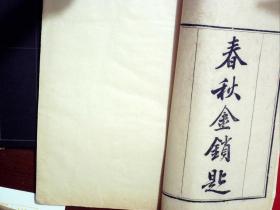 春秋金鎖匙